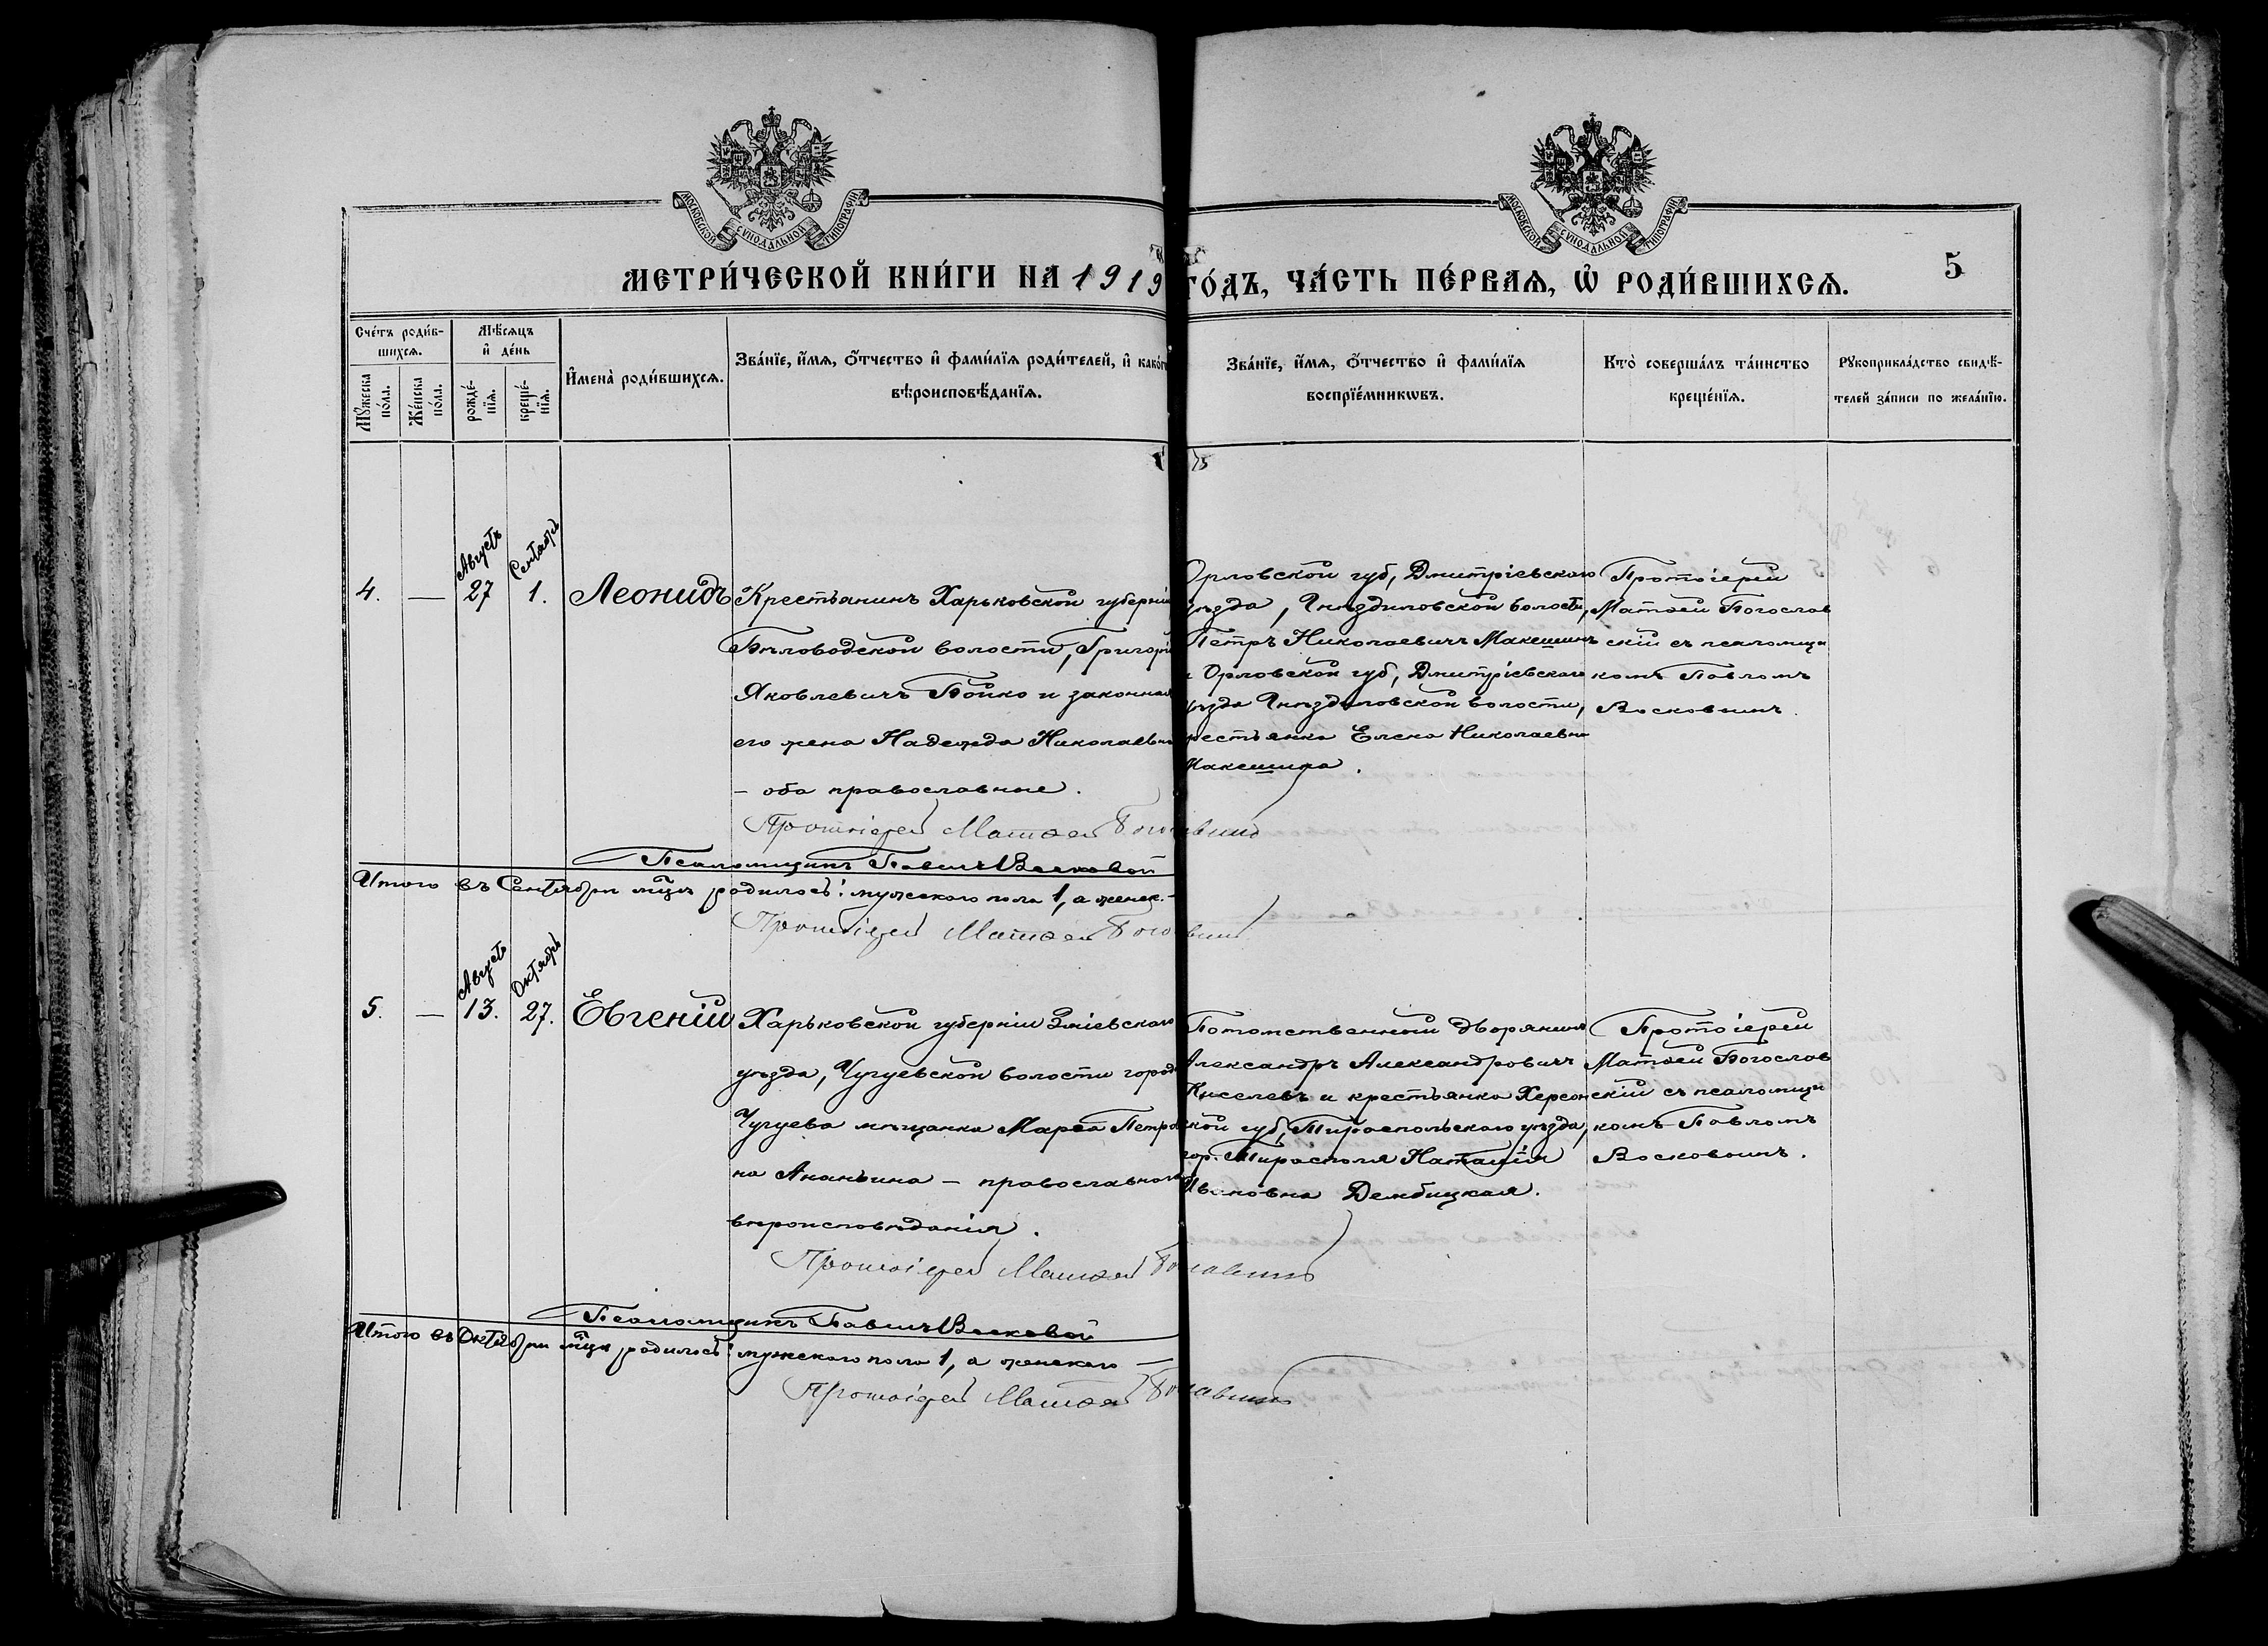 МОСКОВСКОЙ СѴНОДАЛЬНОЙ ТИПОГРАФІИ
МОСКОВСКОЙ СѴНОДАЛЬНОЙ ТИПОГРАФІИ
МЕТРИ́ЧЕСКОЙ КНИ́ГИ НА 1919 ГО́ДЪ, ЧА́СТЬ ПЕ́РВАѦ, Ѽ РОДИ́ВШИХСѦ.
5
Сче́тъ роди́в-
шихсѧ.
Мѣ́сѧцъ
и҆ де́нь
Мꙋ́жеска
по́ла.
Же́нска
по́ла.
рожде́-
нїѧ.
креще́-
нїѧ.
И҆мена̀ роди́вшихсѧ.
Зва́нїе, и҆́мѧ, ѻ҆́тчество и҆ фами́лїѧ роди́телей, и҆ како́гѡ
вѣроисповѣ́данїѧ.
Зва́нїе, и҆́мѧ, ѻ҆́тчество и҆ фами́лїѧ
воспрїе́мникѡвъ.
Кто̀ соверша́лъ та́инство
креще́нїѧ.
Рꙋкоприкла́дство свидѣ́-
телей за́писи по жела́нїю.
4. — Августъ 27 Сентябрь 1. Леонидъ
Крестьянинъ Харьковской губерніи
Бѣловодской волости, Григорій
Яковлевичъ Бойко и законная
его жена Надежда Николаевна
– оба православные.
Протоіерей Матѳей Богословскій
Псаломщикъ Павелъ Восковой
Орловской губ, Дмитріевского
уѣзда, Гнѣздиловской волости,
Петръ Николаевичъ Макешинъ
и Орловской губ, Дмитріевского
уѣзда Гнѣздиловской волости,
крестьянка Елена Николаевна
Макешина.
Протоіерей
Матѳей Богослов
скій съ псаломщи
комъ Павломъ
Восковымъ.
Итого въ Сентябрѣ мцѣ родилось: мужского пола 1, а женск. –
Протоіерей Матѳей Богословскій
5. — Августъ 13. Октябрь 27. Евгеній
Харьковской губерніи Зміевского
уѣзда, Чугуевской волости города
Чугуева мѣщанка Марѳа Петров
на Ананьина – православнаго
вѣроисповѣданія.
Протоіерей Матѳей Богословскій
Псаломщикъ Павелъ Восковой
Потомственный дворянинъ
Александръ Александровичъ
Киселевъ и крестьянка Херсон
ской губ, Тираспольского уѣзда,
гор. Тирасполя Наталія
Ивановна Дембицкая.
Протоіерей
Матѳей Богослов
скій съ псаломщи
комъ Павломъ
Восковымъ.
Итого въ Октябрѣ мцѣ родилось: мужского пола 1, а женского —
Протоіерей Матѳей Богословскій